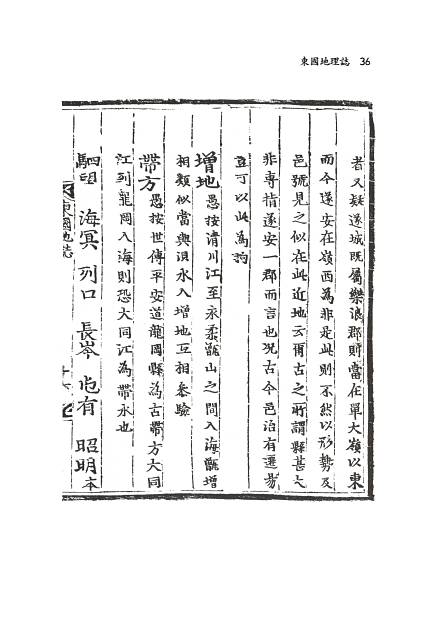 東國地理誌 36
者又疑遂城旣屬樂浪郡則當在單大嶺以東
而今遂安在嶺西爲非是此則不然以形勢及
邑號見之似在此近地云爾古之所謂縣甚大
非專指遂安一郡而言也况古今邑治有遷易
豈可以此為拘
增地 愚按淸川江至永柔甑山之間入海甑增
相類似當與浿水入增地互相叅驗
帶方 愚按世傳平安道龍岡縣為古帶方大同
江到龍岡入海則恐大同江為帶水也
駟望 海冥 列口 長岑 屯有 昭明 本
東國地誌